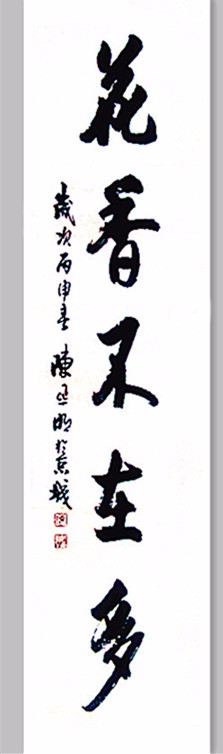 花香不在多
歲次丙申春 陳 明於京城